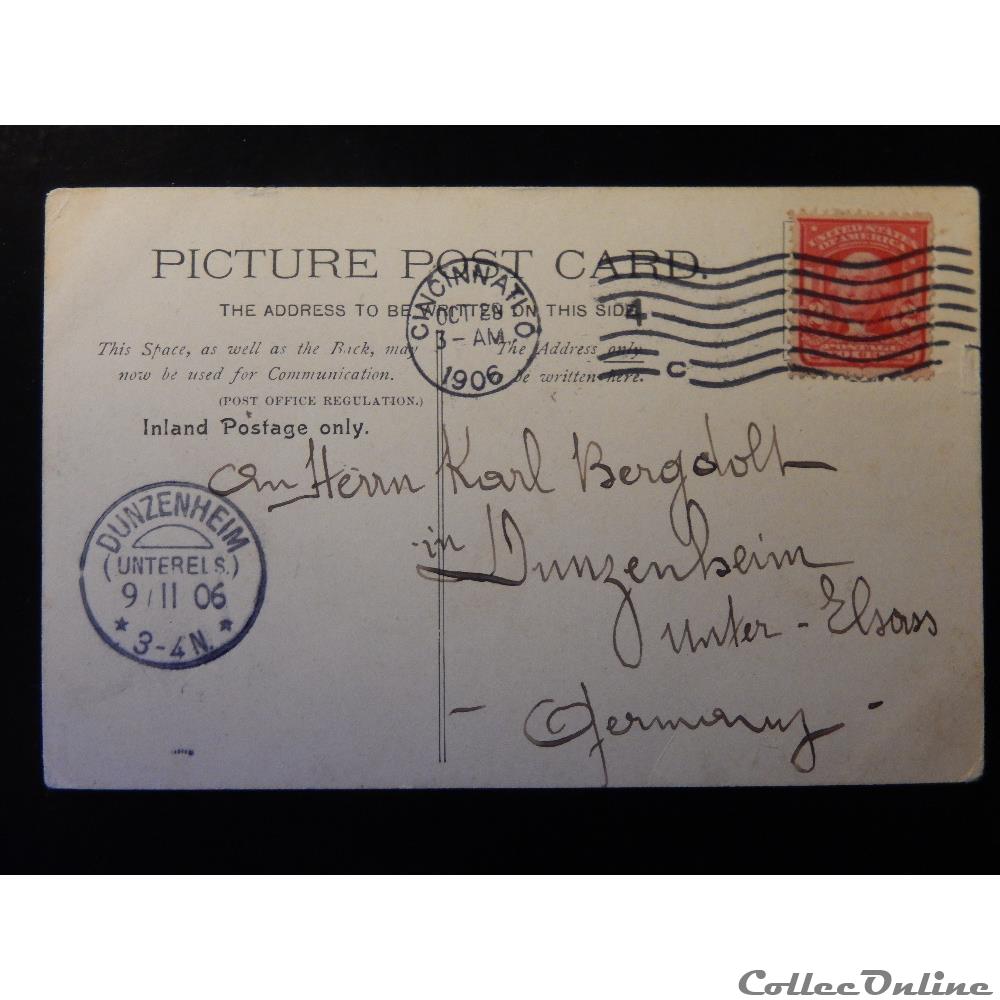 PICTURE POST CARD.
THE ADDRESS TO BE WRITTEN ON THIS SIDE.
This Space, as well as the Back, may
now be used for Communication.
(POST OFFICE REGULATION.)
Inland Postage only.
The Address only
be written here.
CINCINNATI, O
OCT 29
3 - AM
1906
4
C
UNITED STATES
OF AMERICA
An Herrn Karl Bergdolt
in Dunzenheim
Unter - Elsass
- Germany -
DUNZENHEIM
(UNTERELS.)
9/11 06
* 3-4 N. *
CollecOnline